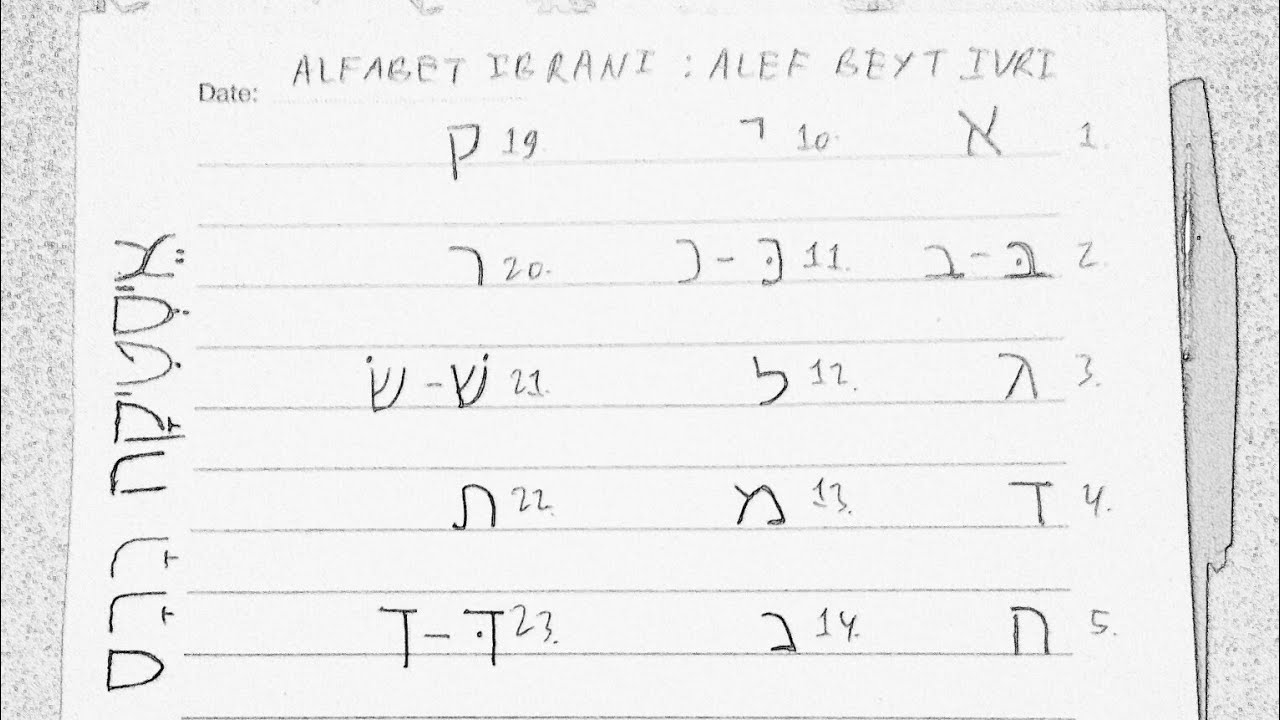 ALFABET IBRANI : ALEF BEYT IVRI
Date:
1. א 10. י 19. ק
2. בּ - ב 11. כּ - כ 20. ר
3. ג 12. ל 21. שׁ - שׂ
4. ד 13. מ 22. ת
5. ה 14. נ 23. ךּ - ך